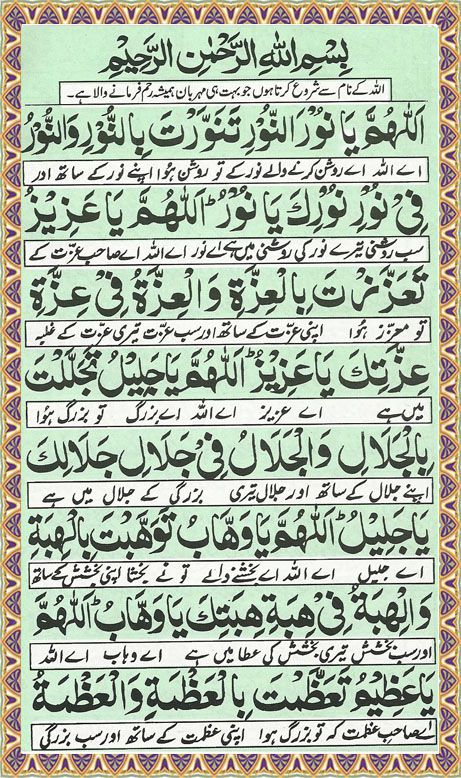 بِسْمِ اللهِ الرَّحْمٰنِ الرَّحِيْمِ
اللہ کے نام سے شروع کرتا ہوں جو بہت ہی مہربان ہمیشہ رحم فرمانے والا ہے۔
اَللّٰهُمَّ يَا نُوْرَ النُّوْرِ تَنَوَّرْتَ بِالنُّوْرِ وَالنُّوْرُ
اے اللہ اے روشن کرنے والے نور کے تو روشن ہُوا اپنے نور کے ساتھ اور
فِيْ نُوْرِ نُوْرِكَ يَا نُوْرُ ؕ اَللّٰهُمَّ يَا عَزِيْزُ
سب روشنی تیرے نور کی روشنی میں ہے اے نور اے اللہ اے صاحب عزّت کے
تَعَزَّزْتَ بِالْعِزَّةِ وَالْعِزَّةُ فِيْ عِزَّةِ
تو معزّز ہُوا اپنی عزّت کے ساتھ اور سب عزّت تیری عزّت کے غلبہ
عِزَّتِكَ يَا عَزِيْزُ ؕ اَللّٰهُمَّ يَا جَلِيْلُ تَجَلَّلْتَ
میں ہے اے عزیز اے اللہ اے بزرگ تو بزرگ ہُوا
بِالْجَلَالِ وَالْجَلَالُ فِيْ جَلَالِ جَلَالِكَ
اپنے جلال کے ساتھ اور جلال تیری بزرگی کے جلال میں ہے
يَا جَلِيْلُ ؕ اَللّٰهُمَّ يَا وَهَّابُ تَوَهَّبْتَ بِالْهِبَةِ
اے جلیل اے اللہ اے بخشنے والے تو نے بخشا اپنی بخشش کے ساتھ
وَالْهِبَةُ فِيْ هِبَةِ هِبَتِكَ يَا وَهَّابُ ؕ اَللّٰهُمَّ
اور سب بخشش تیری بخشش کی عطا میں ہے اے وہاب اے اللہ
يَا عَظِيْمُ تَعَظَّمْتَ بِالْعَظَمَةِ وَالْعَظَمَةُ
اے صاحب عظمت کہ تو بزرگ ہوا اپنی عظمت کے ساتھ اور سب بزرگی